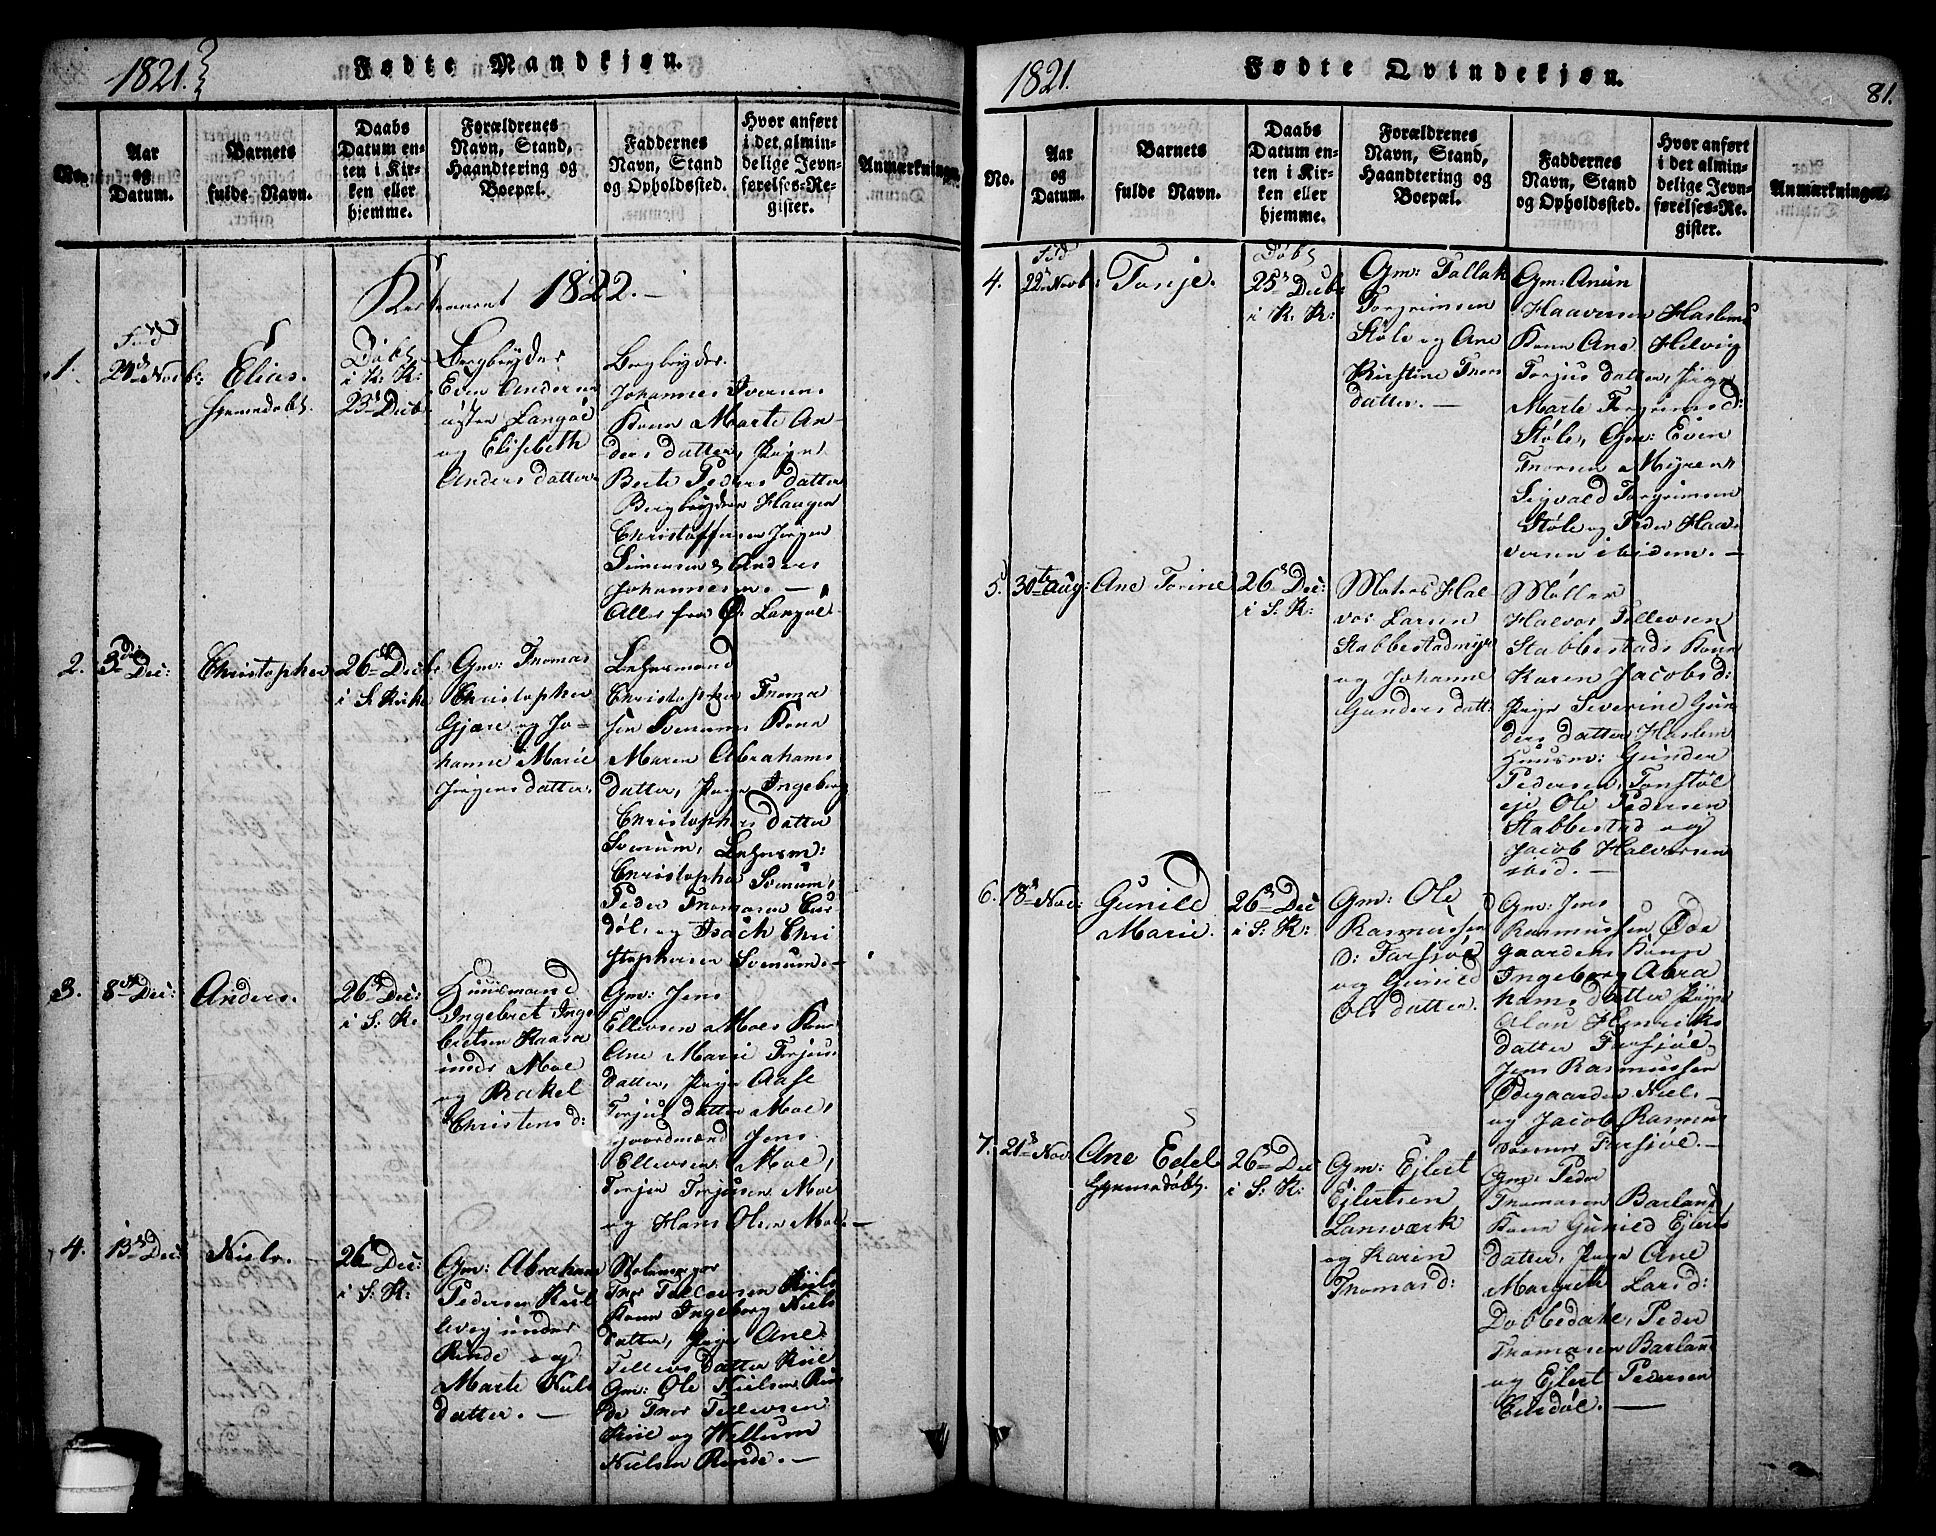 1821.
Fødte Mandkjøn.
No.
Aar
og
Datum.
Barnets
fulde Navn.
Daabs
Datum en-
ten i Kir-
ken eller
hjemme.
Forældrenes
Navn, Stand,
Haandtering og
Boepæl.
Faddernes
Navn, Stand
og Opholdssted.
Hvor anført
i det almin-
delige Jevn-
førelses-Re-
gister.
Anmærkninger.
1822.
1.
Fød
24de Novb:
Elias.
hjemedøbt.
Døbt
i K: K:
23de Decb:
Bergbryder
Even Andersen
østen Langøe
og Elisebeth
Andersdatter
Bergbryder
Johannes Iversens
Kone Marte An-
dersdatter, Pigen
Berte Pedersdatter
Bergbryder Haagen
Christoffersen Jørgen
Simensen & Anders
Johannesen.
Alle fra Ø: Langøe
2.
3die Dec:
Christopher
26de Decb:
i S: Kirke
Gm: Thomas
Christophersen
Gjære og Jo-
hanne Marie
Jørgensdatter.
Lehnsmand
Christopher Thoma
sen Svenums Kone
Maren Abrahams
datter, Pigen Ingeborg
Christophersdatter
Svenum, Lehnsm:
Christopher Svenum,
Peder Thomasen Eis-
døl, og Isach Chri
stophersen Svenum.
3.
8de Dec:
Anders.
26de Dec:
i S: K:
Huusmand
Ingebret Inge
bretsen Kaasa
under Moe
og Rakel
Christensd:
Gm: Jens
Ellevsen Moes Kone
Ane Marie Torjus
datter, Pigen Aase
Torjusdatter Moe,
Gaardmand Jens
Ellevsen Moe,
Torjer Torjusen Moe
og Hans Olsen Moe
4.
13de Dec:
Niels.
26de Dec:
i S: K:
Gm: Abraham
Pedersen
under
Rinde og
Marte Niels
datter.
Thor Tellevsen
Kone Ingeborg Niels
datter, Pigen Ane
Tellevsdatter
Gm: Ole Nielsen Rin
de Thor Tellevsen
og Wellum
Nielsen Rinde.
1821.
Fødte Qvindekjøn.
81.
No.
Aar
og
Datum.
Barnets
fulde Navn.
Daabs
Datum en-
ten i Kir-
ken eller
hjemme.
Forældrenes
Navn, Stand,
Haandtering og
Boepæl.
Faddernes
Navn, Stand
og Opholdssted.
Hvor anført
i det almin-
delige Jevn-
førelses-Re-
gister.
Anmærkninger.
4.
Fød
22de Novb:
Tonje.
Døbt
25de Decb:
i K: K:
Gm: Tallak
Torgrimsen
Støle og Ane
Kirstine Thors
datter.
Gm: Anun
Haavorsen Haslems
Kone Ane Helvig
Torjusdatter, Pigen
Marte Torgrimsd:
Støle, Gm: Even
Thorsen Myren
Sigvald Torgrimsen
Støle og Peder Haa-
vorsen ibidem.
5.
30te Aug:
Ane Torine
26de Dec:
i S: K:
Matros Hal
vor Larsen
Stabbestadmyr
og Johanne
Gundersdatt:
Møller
Halvor Tellevsen
Stabbestads Kone
Karen Jacobsd:
Pigen Severine Gun
dersdatter Haslem
Huusm: Gunder
Pedersen, Tonstøl
eje Ole Pedersen
Stabbestad og
Jacob Halvorsen
ibid.
6.
18de Nov:
Gunild
Marie.
26de Dec
i S: K:
Gm: Ole
Rasmussen
Ø: Farsjøe
og Gunild
Olsdatter.
Gm: Jens
Rasmussen Øde
gaardens Kone
Ingeborg Abra
hamsdatter Pigen
Olau Henriks
datter Farsjøe,
Jens Rasmussen
Ødegaarden Niel-
og Jacob Rasmus
sønner Farsjøe.
7.
21de Nov:
Ane Edel
hjemedøbt.
26de Dec
i S: K:
Gm: Ejlert
Ejlertsen
Lanværk
og Karen
Thomasd:
Gm: Peder
Thomasen Barland
Kone Gunild Ejlerts
datter, Pigen Ane
Margrete Larsd:
Dobbedahl, Peder
Thomasen Barland
og Ejlert Pedersen
Eisdøl.